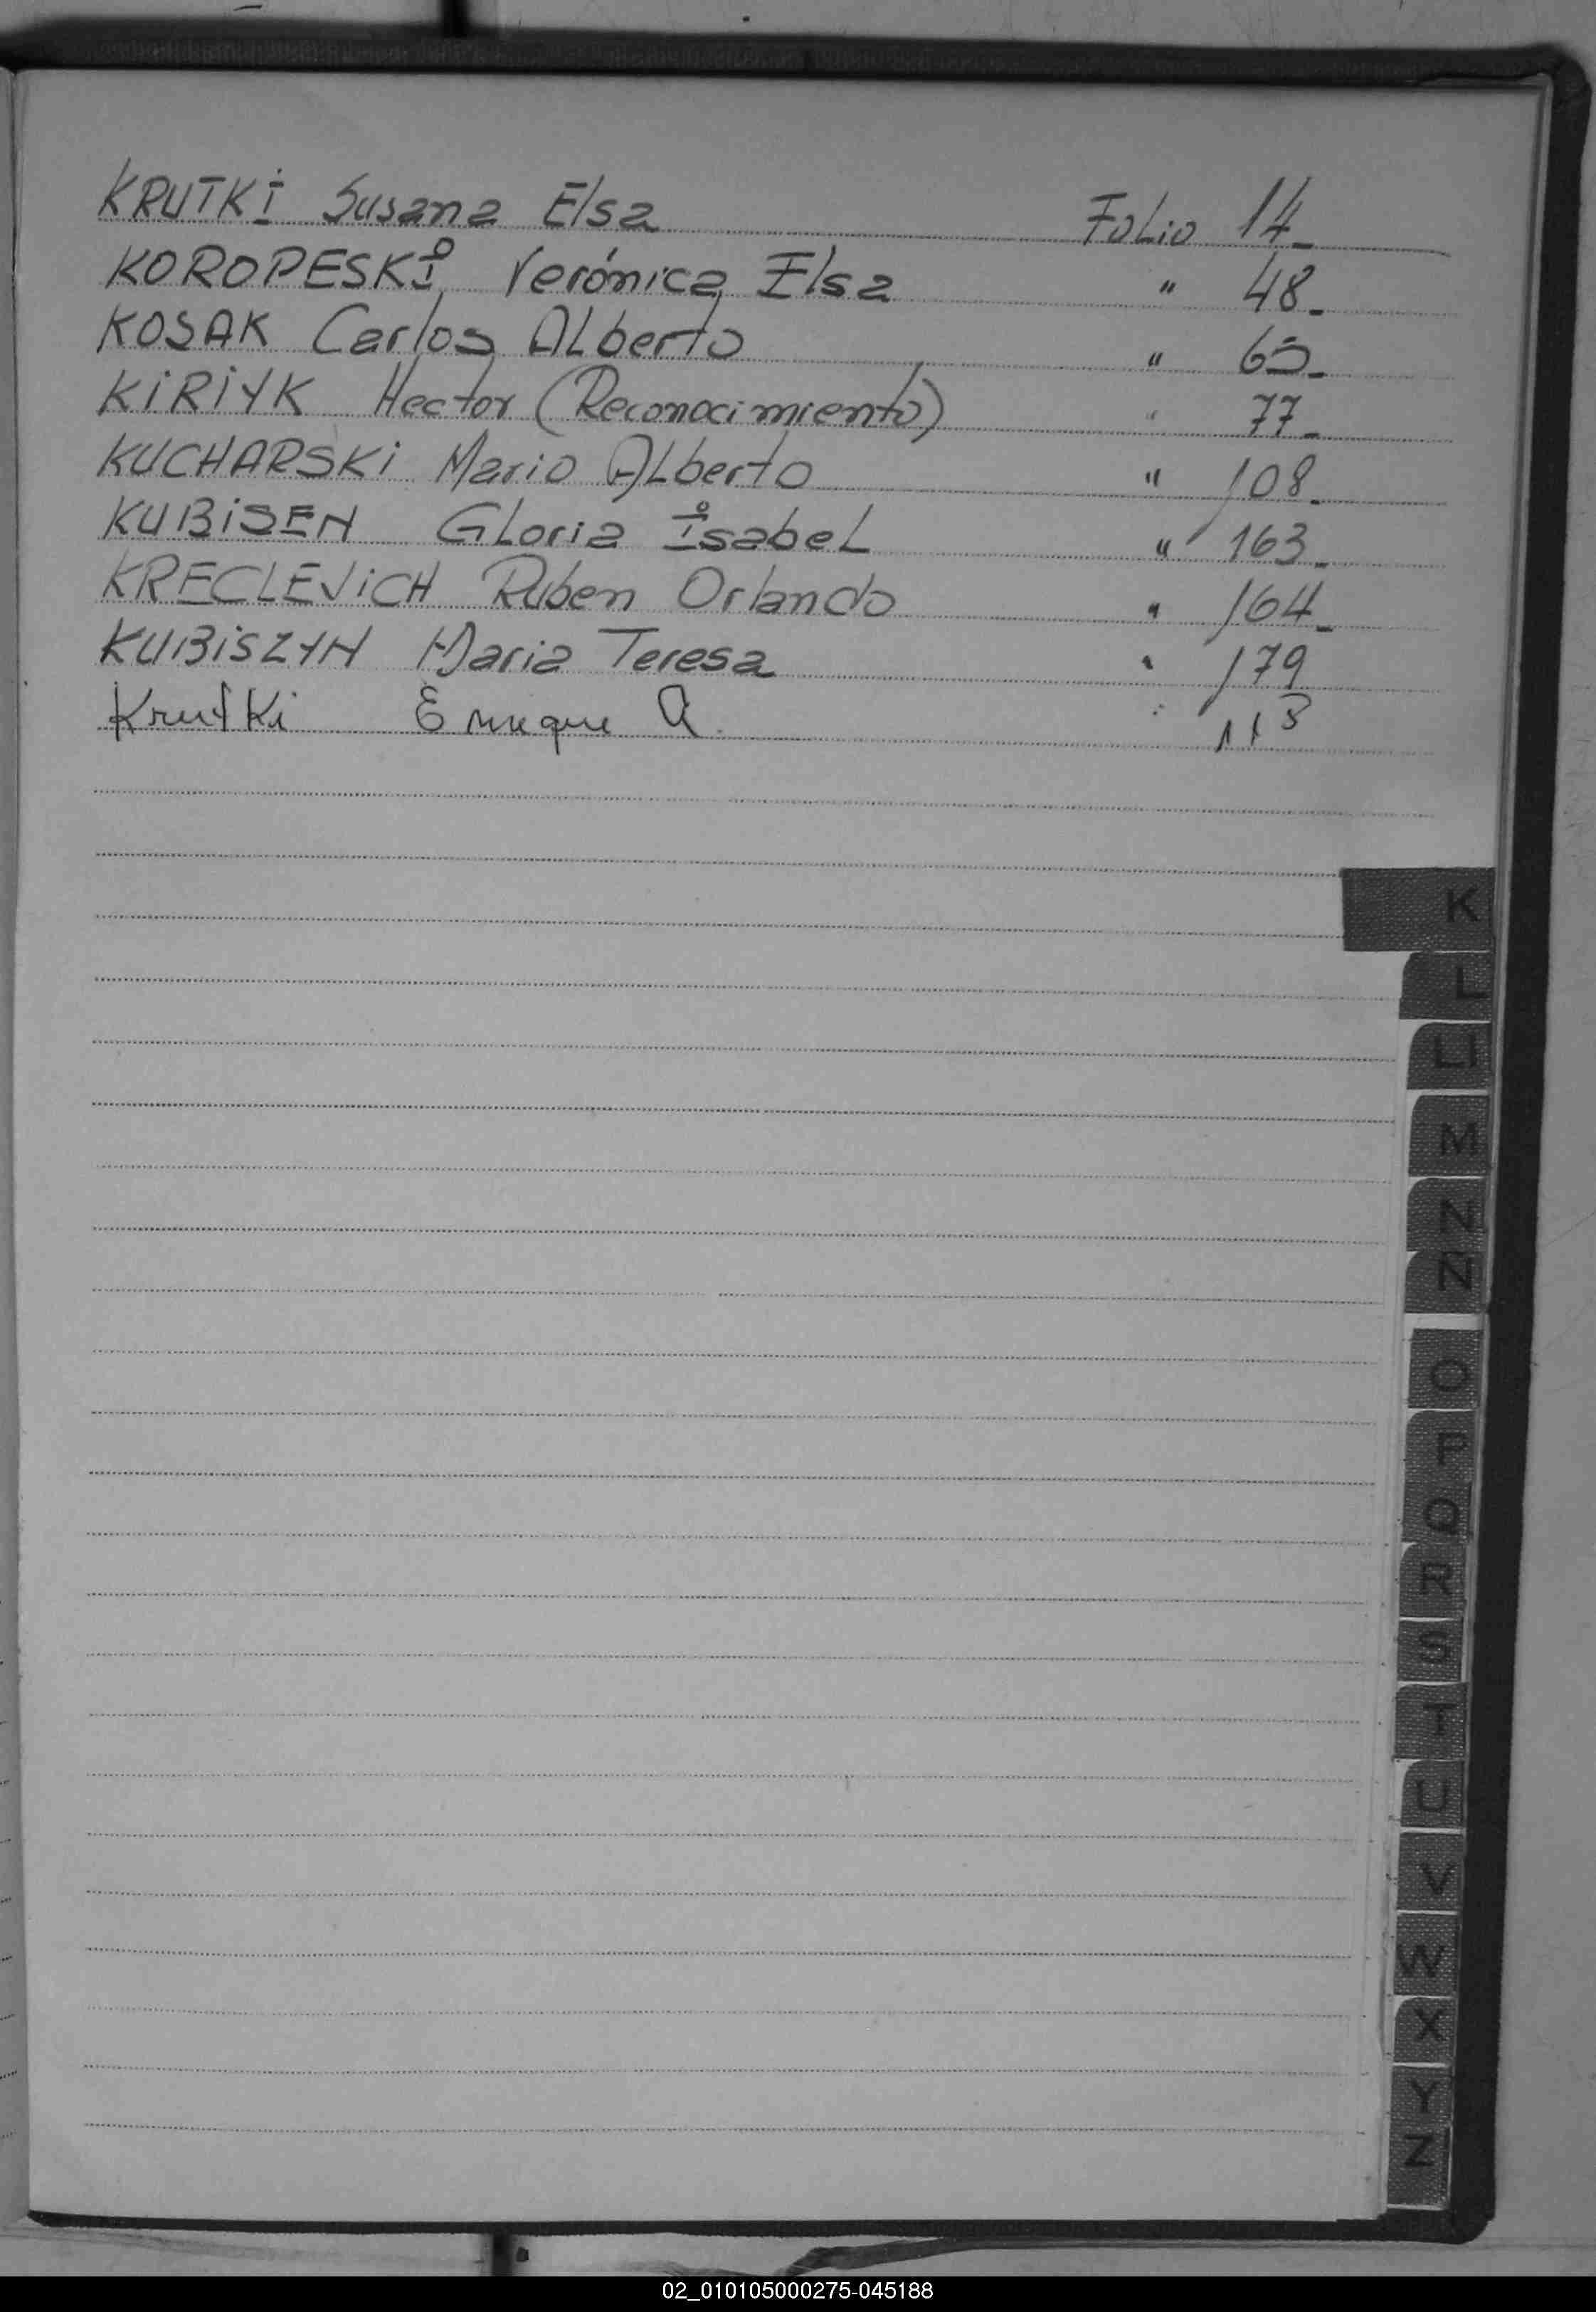 KRUTKi Susana Elsa Folio 14_
KOROPESKI Verónica Elsa " 48_
KOSAK Carlos Alberto " 65_
KiRiYK Hector (Reconocimiento) " 77_
KUCHARSKi Mario Alberto " 108_
KUBiSEN Gloria Isabel " 163_
KRECLEVICH Ruben Orlando " 164_
KUBiSZYN Maria Teresa " 179
Krutki Enrique A. " 113
K
L
Ll
M
N
Ñ
O
P
Q
R
S
T
U
V
W
X
Y
Z
02_010105000275-045188